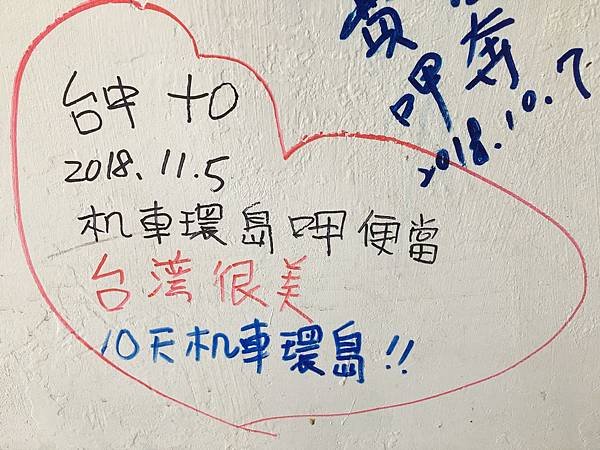 台中 十O
2018.11.5
机車環島呷便當
台湾很美
10天机車環島!!
呷
2018.10.7